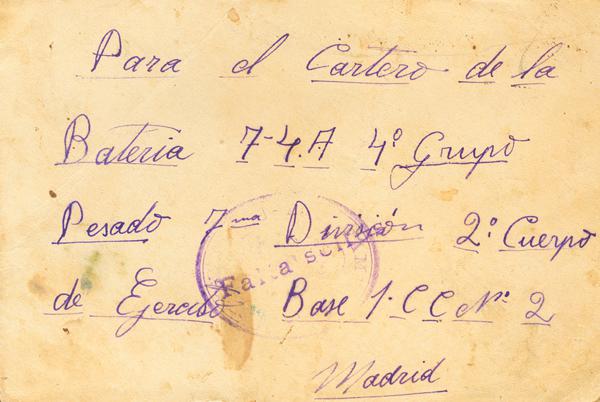 Para el Cartero de la
Bateria 7-4.A 4º Grupo
Pesado 7ma División 2º Cuerpo
de Ejercito Base 1. C C Nº 2
Madrid
Falta sello